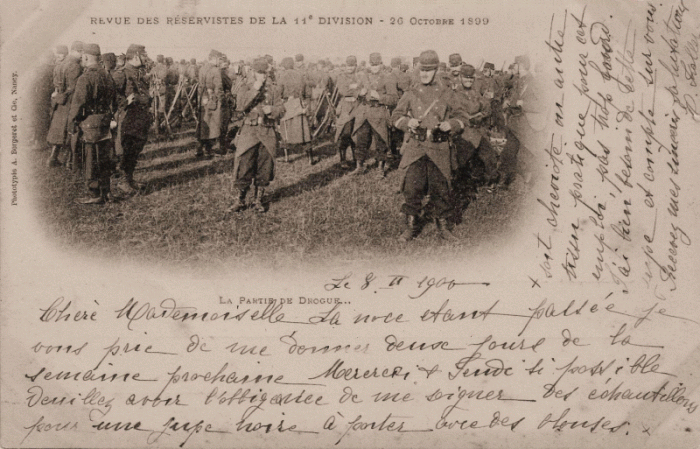 REVUE DES RÉSERVISTES DE LA 11e DIVISION - 26 OCTOBRE 1899
Phototypie A. Bergeret et Cie, Nancy.
LA PARTIE DE DROGUE...
Le 8. II 1900
Chère Mademoiselle La noce etant passée je
vous prie de me donner deux jours de la
semaine prochaine Mercredi & Jeudi si possible
Veuillez avoir l'obligeance de me des échantillons
pour une jupe noire à porter avec des blouses. x
x soit cheviote ou autre
tissu pratique pour cet
emploi pas trop lourd.
J'ai bien besoin de cette
jupe et compte sur vous.
Recevez mes salutations